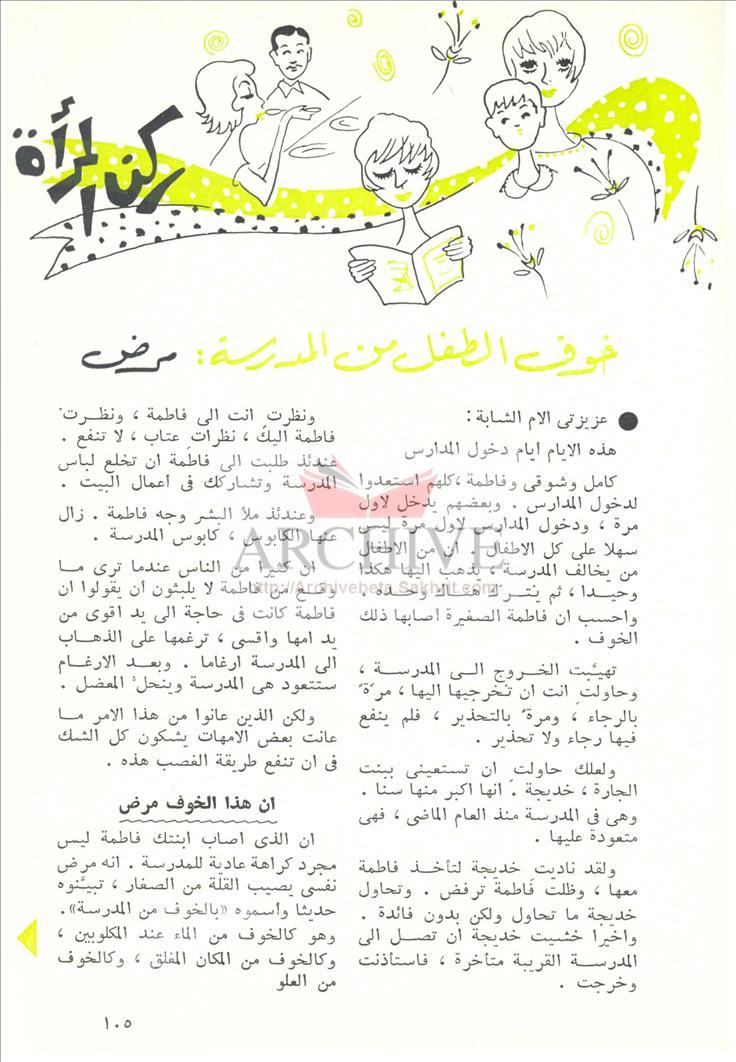 ركن المرأة
خوف الطفل من المدرسة: مرض
● عزيزتى الام الشابة :
هذه الايام أيام دخول المدارس
كامل وشوقى وفاطمة ،كلهم استعدوا
لدخول المدارس . وبعضهم يدخل لاول
مرة ، ودخول المدارس لاول مرة ليس
سهلا على كل الاطفال . ان من الاطفال
من يخاف المدرسة ، يذهب اليها هكذا
وحيدا ، ثم يُترك هناك وحده .
واحسب ان فاطمة الصغيرة أصابها ذلك
الخوف .
تهيَّبت الخروج الى المدرسة ،
وحاولتِ انت ان تخرجيها اليها ، مرّةً
بالرجاء ، ومرةً بالتحذير ، فلم ينفع
فيها رجاء ولا تحذير .
ولعلك حاولتِ ان تستعينى ببنت
الجارة ، خديجة . انها اكبر منها سنا .
وهى فى المدرسة منذ العام الماضى ، فهى
متعودة عليها .
ولقد ناديتِ خديجة لتأخذ فاطمة
معها ، وظلت فاطمة ترفض . وتحاول
خديجة ما تحاول ولكن بدون فائدة .
واخيرا خشيت خديجة ان تصل الى
المدرسة القريبة متأخرة ، فاستأذنت
وخرجت .
ونظرتِ انت الى فاطمة ، ونظرت
فاطمة اليكِ ، نظرات عتاب ، لا تنفع .
عندئذ طلبت الى فاطمة ان تخلع لباس
المدرسة وتشاركك فى أعمال البيت .
وعندئذ ملأ البشر وجه فاطمة . زال
عنها الكابوس ، كابوس المدرسة .
ان كثيرا من الناس عندما ترى ما
وقع من فاطمة لا يلبثون أن يقولوا ان
فاطمة كانت فى حاجة الى يد اقوى من
يد امها واقسى ، ترغمها على الذهاب
الى المدرسة ارغاما . وبعد الارغام
ستتعود هى المدرسة وينحلّ المعضل .
ولكن الذين عانوا من هذا الامر ما
عانت بعض الامهات يشكون كل الشك
فى ان تنفع طريقة الغصب هذه .
ان هذا الخوف مرض
ان الذى اصاب ابنتك فاطمة ليس
مجرد كراهة عادية للمدرسة . انه مرض
نفسى يصيب القلة من الصغار ، تبيَّنوه
حديثا وأسموه «بالخوف من المدرسة».
وهو كالخوف من الماء عند المكلوبين ،
وكالخوف من المكان المغلق ، وكالخوف
من العلو
١٠٥
ARCHIVE
http://Archivebeta.Sakhrit.com